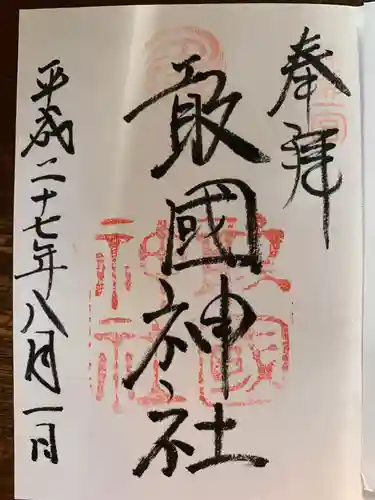 奉拝
敢國神社
平成二十七年八月一日
敢國
神社